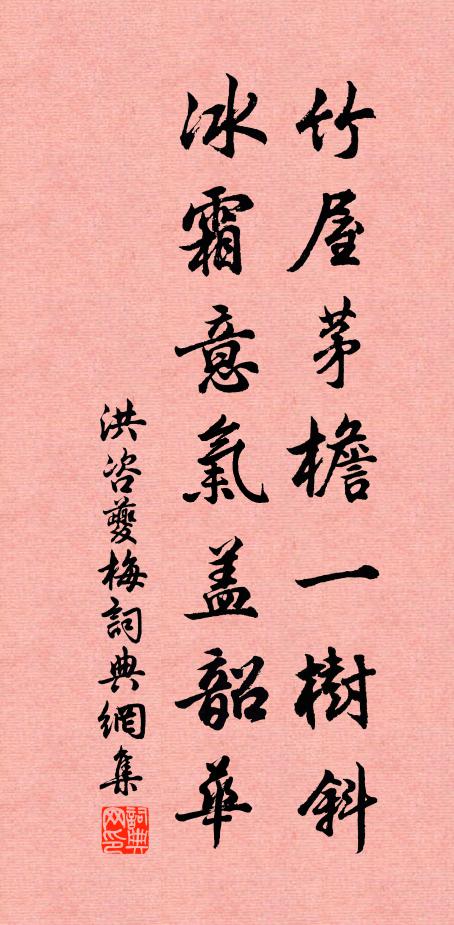 竹屋茅檐一樹斜
冰霜意氣盖韶華
洪咨夔梅詞典網集
詞典网印